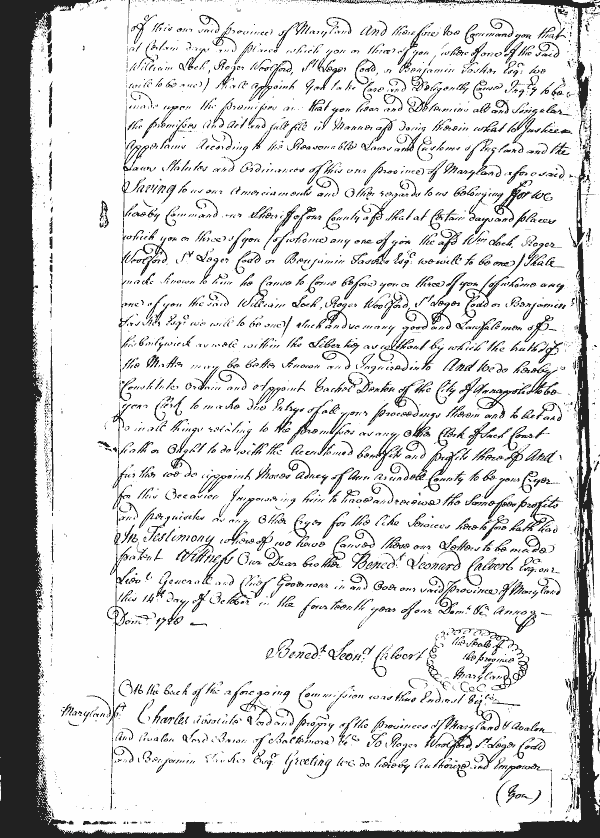 of this our said province of Maryland And therefore We Command you that
at Certain days and places which you or three of you (whereof one of the said
William Lock, Roger Woolford, St Leger Codd, or Benjamin Tasker Esqr. we
will to be one) shall appoint You take Care and Diligently Cause Inqry to be
made upon the premises and that you hear and Determine all and Singular
the premises And Act and fullfill in Manner afd doing therein what to Justice
Appertains According to the Reasonable Laws and Customs of England and the
Laws Statutes and Ordinances of this our province of Maryland aforesaid
Saving to us our Amerciaments and Other regards to us belonging for we
hereby Command our Sheriff of our County afd that at Certain days and places
which you or three of you (of whome any one of you the afd Wm. Lock, Roger
Woolford, St Leger Codd or Benjamin Tasker Esqr. we will to be one) shall
made known to him he Cause to Come before you or three of you (of whome any
one of you the said William Lock, Roger Woolford, St Leger Codd or Benjamin
Tasker Esqr we will to be one) Such and so many good and Lawfull men of
his Balywick as well within the Liberty as without by which the truth of
the Matter may be better known and Inquired into And we do hereby
Constitute Ordain and Appoint Vachel Denton of the City of Annapolis to be
your Clerk to make due Entrys of all your proceedings therein and to Act and
do in all things relating to the premises as any Other Clerk of Such Court
hath or Ought to do with the Accustomed benefits and profits thereof And
further we do appoint Moses Adney of Ann Arundell County to be your Cryer
for this Occasion Impowering him to have and receive the Same fees profits
and perquisites as any Other Cryer for the like Services heretofore hath had
In Testimony whereof we have Caused these our Letters to be made
patent Witness Our Dear brother Benedt. Leonard Calvert Esqr. our
Lieut. Generall and Chief Governour in and Over our said province of Maryland
this 14th Day of October in the fourteenth year of our Domn. &c. Annoq
Dom. 1728
Benedt. Leond. Calvert
the Seale of
the province
Maryland
On the back of the aforegoing Commission was thus Endorst Vizt.
Maryland ss
Charles Absolute Lord and Propry of the provinces of Maryland & Avalon
and Avalon Lord Baron of Baltimore &c. To Roger Woolford, St Leger Codd
and Benjamin Tasker Esqr Greeting we do hereby Authorize and Empower
(You)